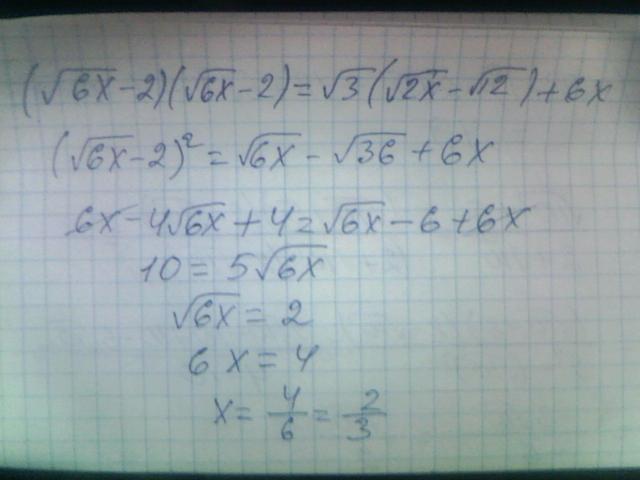 (√6x-2)(√6x-2)=√3(√2x-√12)+6x
(√6x-2)²=√6x-√36+6x
6x-4√6x+4=√6x-6+6x
10=5√6x
√6x=2
6x=4
x=4/6=2/3